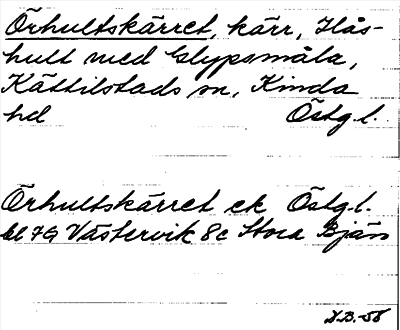 Örhultskärret, kärr, Hås-
hult med Glypsmåla,
Kättilstads sn, Kinda
hd Östg.l.
Örhultskärret ek Östg.l.
bl 79 Västervik 8c Stora Bjän